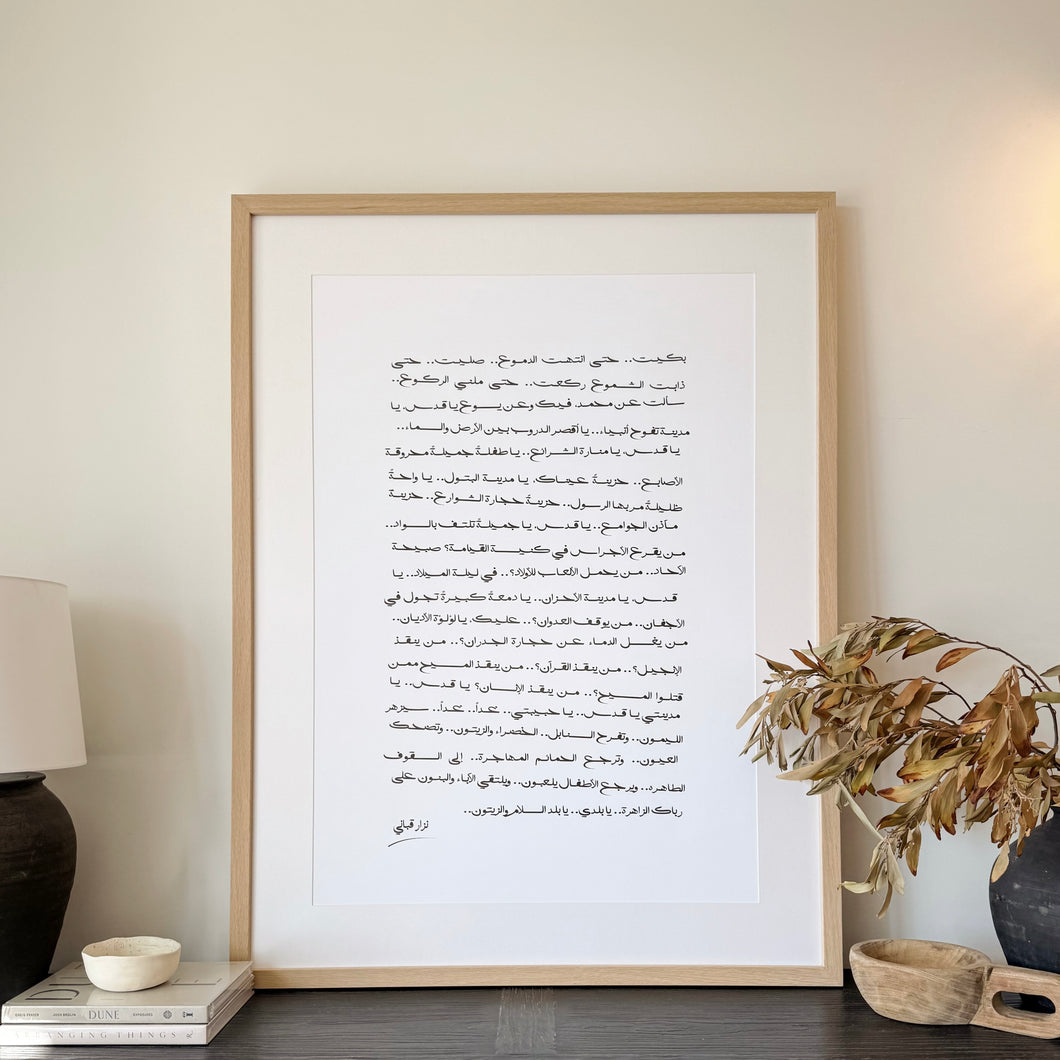 بكيت.. حتى انتهت الدموع.. صليت.. حتى
ذابت الشموع ركعت.. حتى ملني الركوع..
سألت عن محمد، فيك وعن يسوع يا قدس، يا
مدينة تفوح أنبياء.. يا أقصر الدروب بين الأرض والسماء..
يا قدس، يا منارة الشرائع.. يا طفلةً جميلةً محروقة
الأصابع.. حزينةٌ عيناك، يا مدينة البتول.. يا واحةً
ظليلةً مر بها الرسول.. حزينةٌ حجارة الشوارع.. حزينة
مآذن الجوامع.. يا قدس، يا جميلةً تلتف بالسواد..
من يقرع الأجراس في كنيسة القيامة؟ صبيحة
الآحاد.. من يحمل الألعاب للأولاد؟.. في ليلة الميلاد.. يا
قدس، يا مدينة الأحزان.. يا دمعةً كبيرةً تجول في
الأجفان.. من يوقف العدوان؟.. عليك، يا لؤلؤة الأديان..
من يغسل الدماء عن حجارة الجدران؟.. من ينقذ
الإنجيل؟.. من ينقذ القرآن؟.. من ينقذ المسيح ممن
قتلوا المسيح؟.. من ينقذ الإنسان؟ يا قدس.. يا
مدينتي يا قدس.. يا حبيبتي.. غداً.. غداً.. سيزهر
الليمون.. وتفرح السنابل.. الخضراء والزيتون.. وتضحك
العيون.. وترجع الحمائم المهاجرة.. إلى السقوف
الطاهره.. ويرجع الأطفال يلعبون.. ويلتقي الآباء والبنون على
رباك الزاهرة.. يا بلدي.. يا بلد السلام والزيتون..
نزار قباني
DUNE
GREIG FRASER JOSH BROLIN DUNE EXPOSURES
ARRANGING THINGS